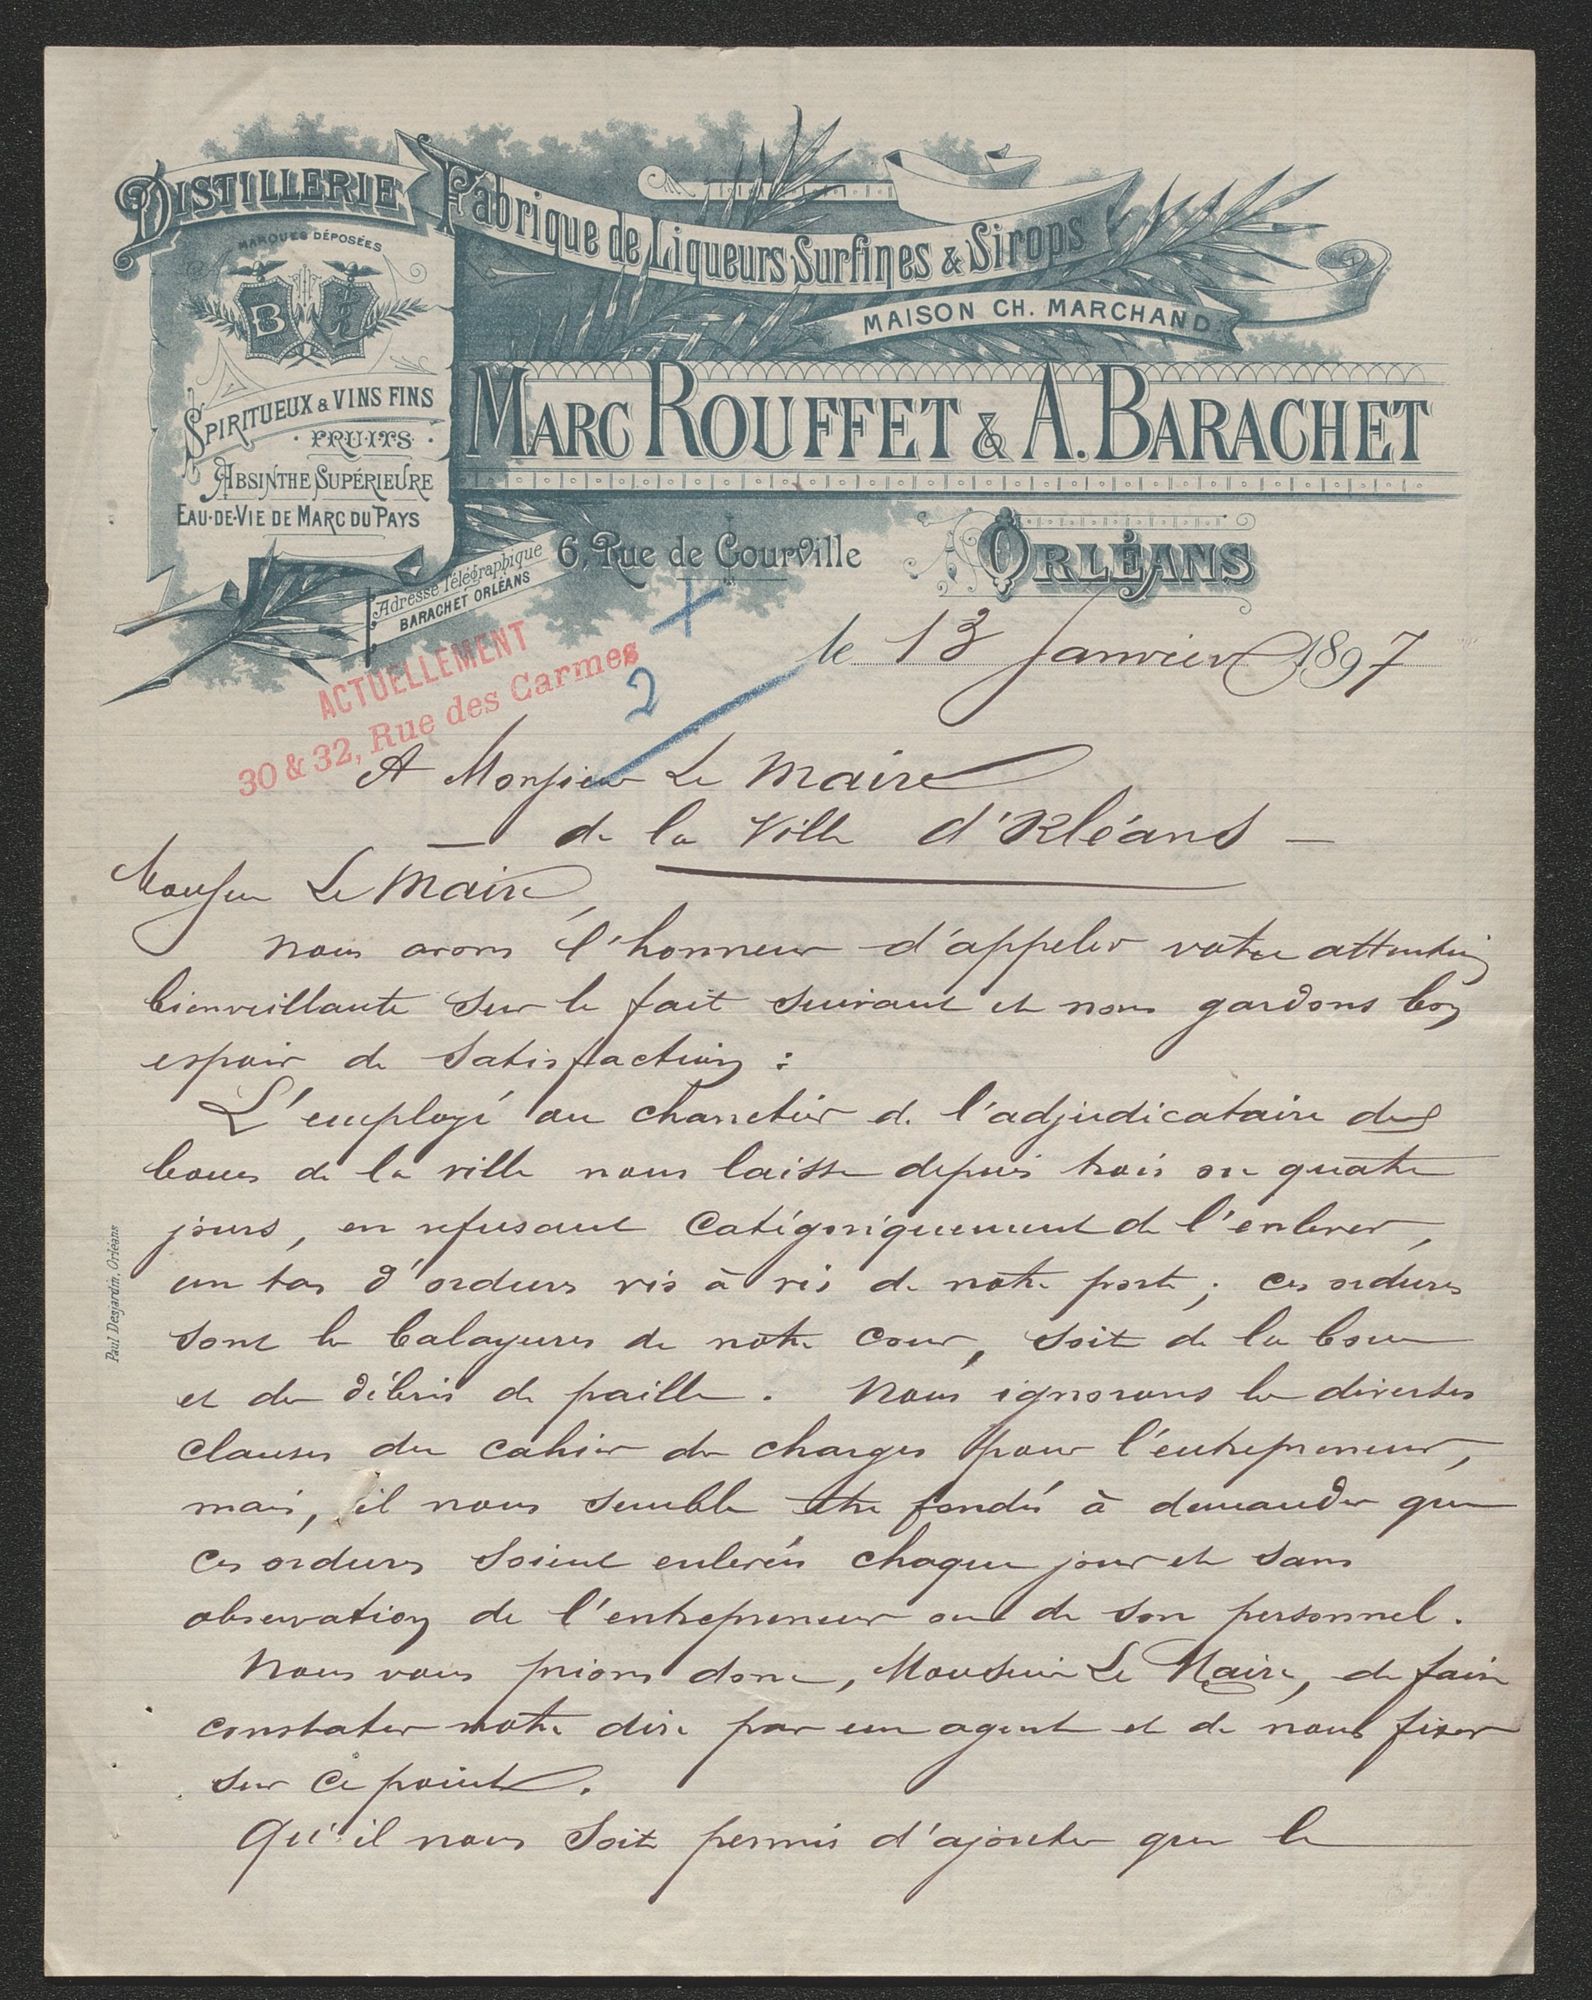 DISTILLERIE
Fabrique de Liqueurs Surfines & Sirops
MAISON CH. MARCHAND
MARQUES DÉPOSÉES
B R
SPIRITUEUX & VINS FINS
FRUITS
ABSINTHE SUPÉRIEURE
EAU-DE-VIE DE MARC DU PAYS
MARC ROUFFET & A. BARACHET
6, Rue de Courville
ORLÉANS
Adresse Télégraphique
BARACHET ORLÉANS
ACTUELLEMENT
30 & 32, Rue des Carmes
2
le 13 Janvier 1897
A Monsieur Le Maire
— de la Ville d'Orléans —
Monsieur Le Maire,
Nous avons l'honneur d'appeler votre attention
bienveillante sur le fait suivant et nous gardons bon
espoir de satisfaction :
L'employé au chantier de l'adjudicataire des
boues de la ville nous laisse depuis trois ou quatre
jours, en refusant catégoriquement de l'enlever,
un tas d'ordures vis à vis de notre porte ; ces ordures
sont les balayures de notre cour, soit de la boue
et des débris de paille. Nous ignorons les diverses
clauses du cahier des charges pour l'entrepreneur,
mais, il nous semble être fondés à demander que
ces ordures soient enlevées chaque jour et sans
observation de l'entrepreneur ou de son personnel.
Nous vous prions donc, Monsieur Le Maire, de faire
constater notre dire par un agent et de nous fixer
sur ce point.
Qu'il nous soit permis d'ajouter que le
Paul Desjardin, Orléans